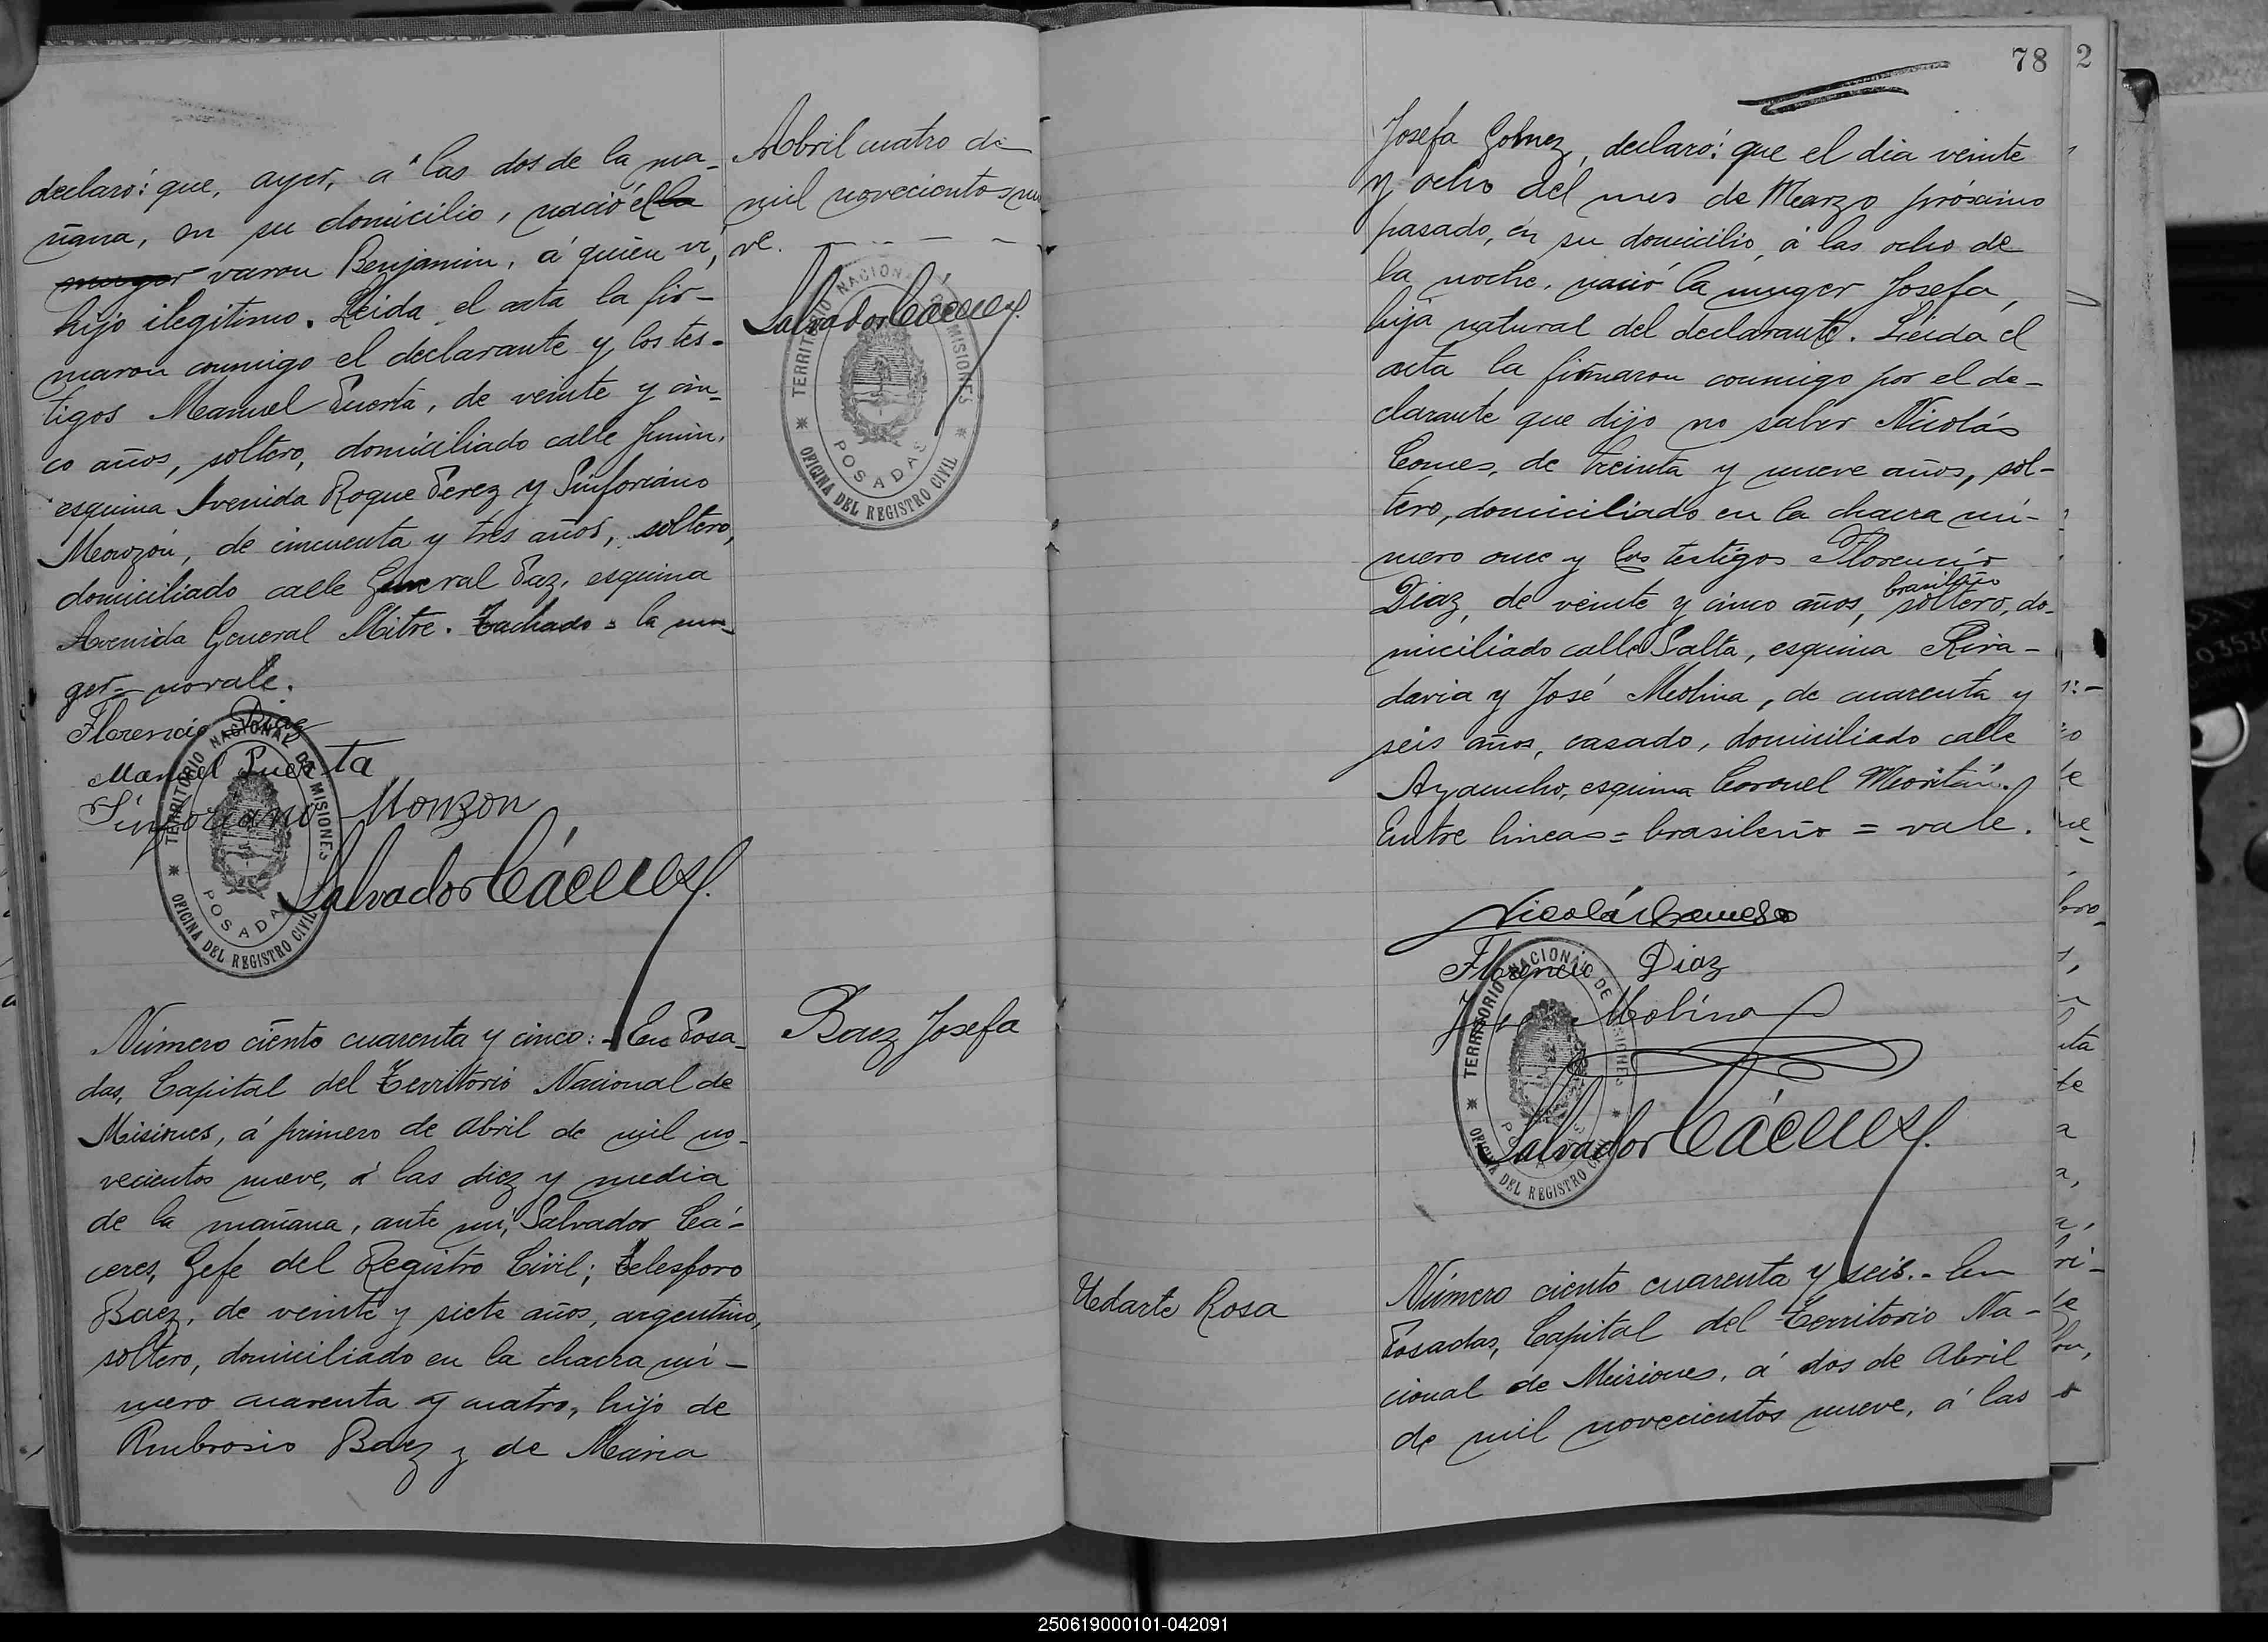 declaró: que, ayer, á las dos de la ma-
ñana, en su domicilio, nació el la
muger varon Benjamin, á quien vi,
hijo ilegitimo. Leida el acta la fir-
maron conmigo el declarante y los tes-
tigos Manuel Puerta, de veinte y cin-
co años, soltero, domiciliado calle Junin,
esquina Avenida Roque Perez y Sinforiano
Monzón, de cincuenta y tres años, soltero,
domiciliado calle General Paz, esquina
Avenida General Mitre. Tachado = la mu-
ger = no vale.
Florencio Diaz
Manuel Puerta
Sinforiano Monzon
Salvador Cáceres
TERRITORIO NACIONAL DE MISIONES
POSADAS
OFICINA DEL REGISTRO CIVIL
Abril cuatro de
mil novecientos nue
ve.
Salvador Cáceres
TERRITORIO NACIONAL DE MISIONES
POSADAS
OFICINA DEL REGISTRO CIVIL
Baez Josefa
Número ciento cuarenta y cinco: - En Posa-
das, Capital del Territorio Nacional de
Misiones, á primero de Abril de mil no-
vecientos nueve, á las diez y media
de la mañana, ante mí, Salvador Cá-
ceres, Gefe del Registro Civil; Telesforo
Baez, de veinte y siete años, argentino,
soltero, domiciliado en la chacra nú-
mero cuarenta y cuatro, hijo de
Ambrosio Baez y de Maria
78
2
Josefa Gomez, declaró: que el dia veinte
y ocho del mes de Marzo próximo
pasado, en su domicilio, á las ocho de
la noche, nació la muger Josefa,
hija natural del declarante. Leida el
acta la firmaron conmigo por el de-
clarante que dijo no saber Nicolás
Comes, de treinta y nueve años, sol-
tero, domiciliado en la chacra nú-
mero once y los testigos Florencio
brasileño
Diaz, de veinte y cinco años, soltero, do-
miciliado calle Salta, esquina Riva-
davia y José Molina, de cuarenta y
seis años, casado, domiciliado calle
Ayacucho, esquina Coronel Moritán.
Entre lineas = brasileño = vale.
Nicolás
Florencio Diaz
José Molina
Salvador Cáceres
TERRITORIO NACIONAL DE MISIONES
POSADAS
OFICINA DEL REGISTRO CIVIL
Rosa
Número ciento cuarenta y seis. - En
Posadas, Capital del Territorio Na-
cional de Misiones, á dos de Abril
de mil novecientos nueve, á las
250619000101-042091